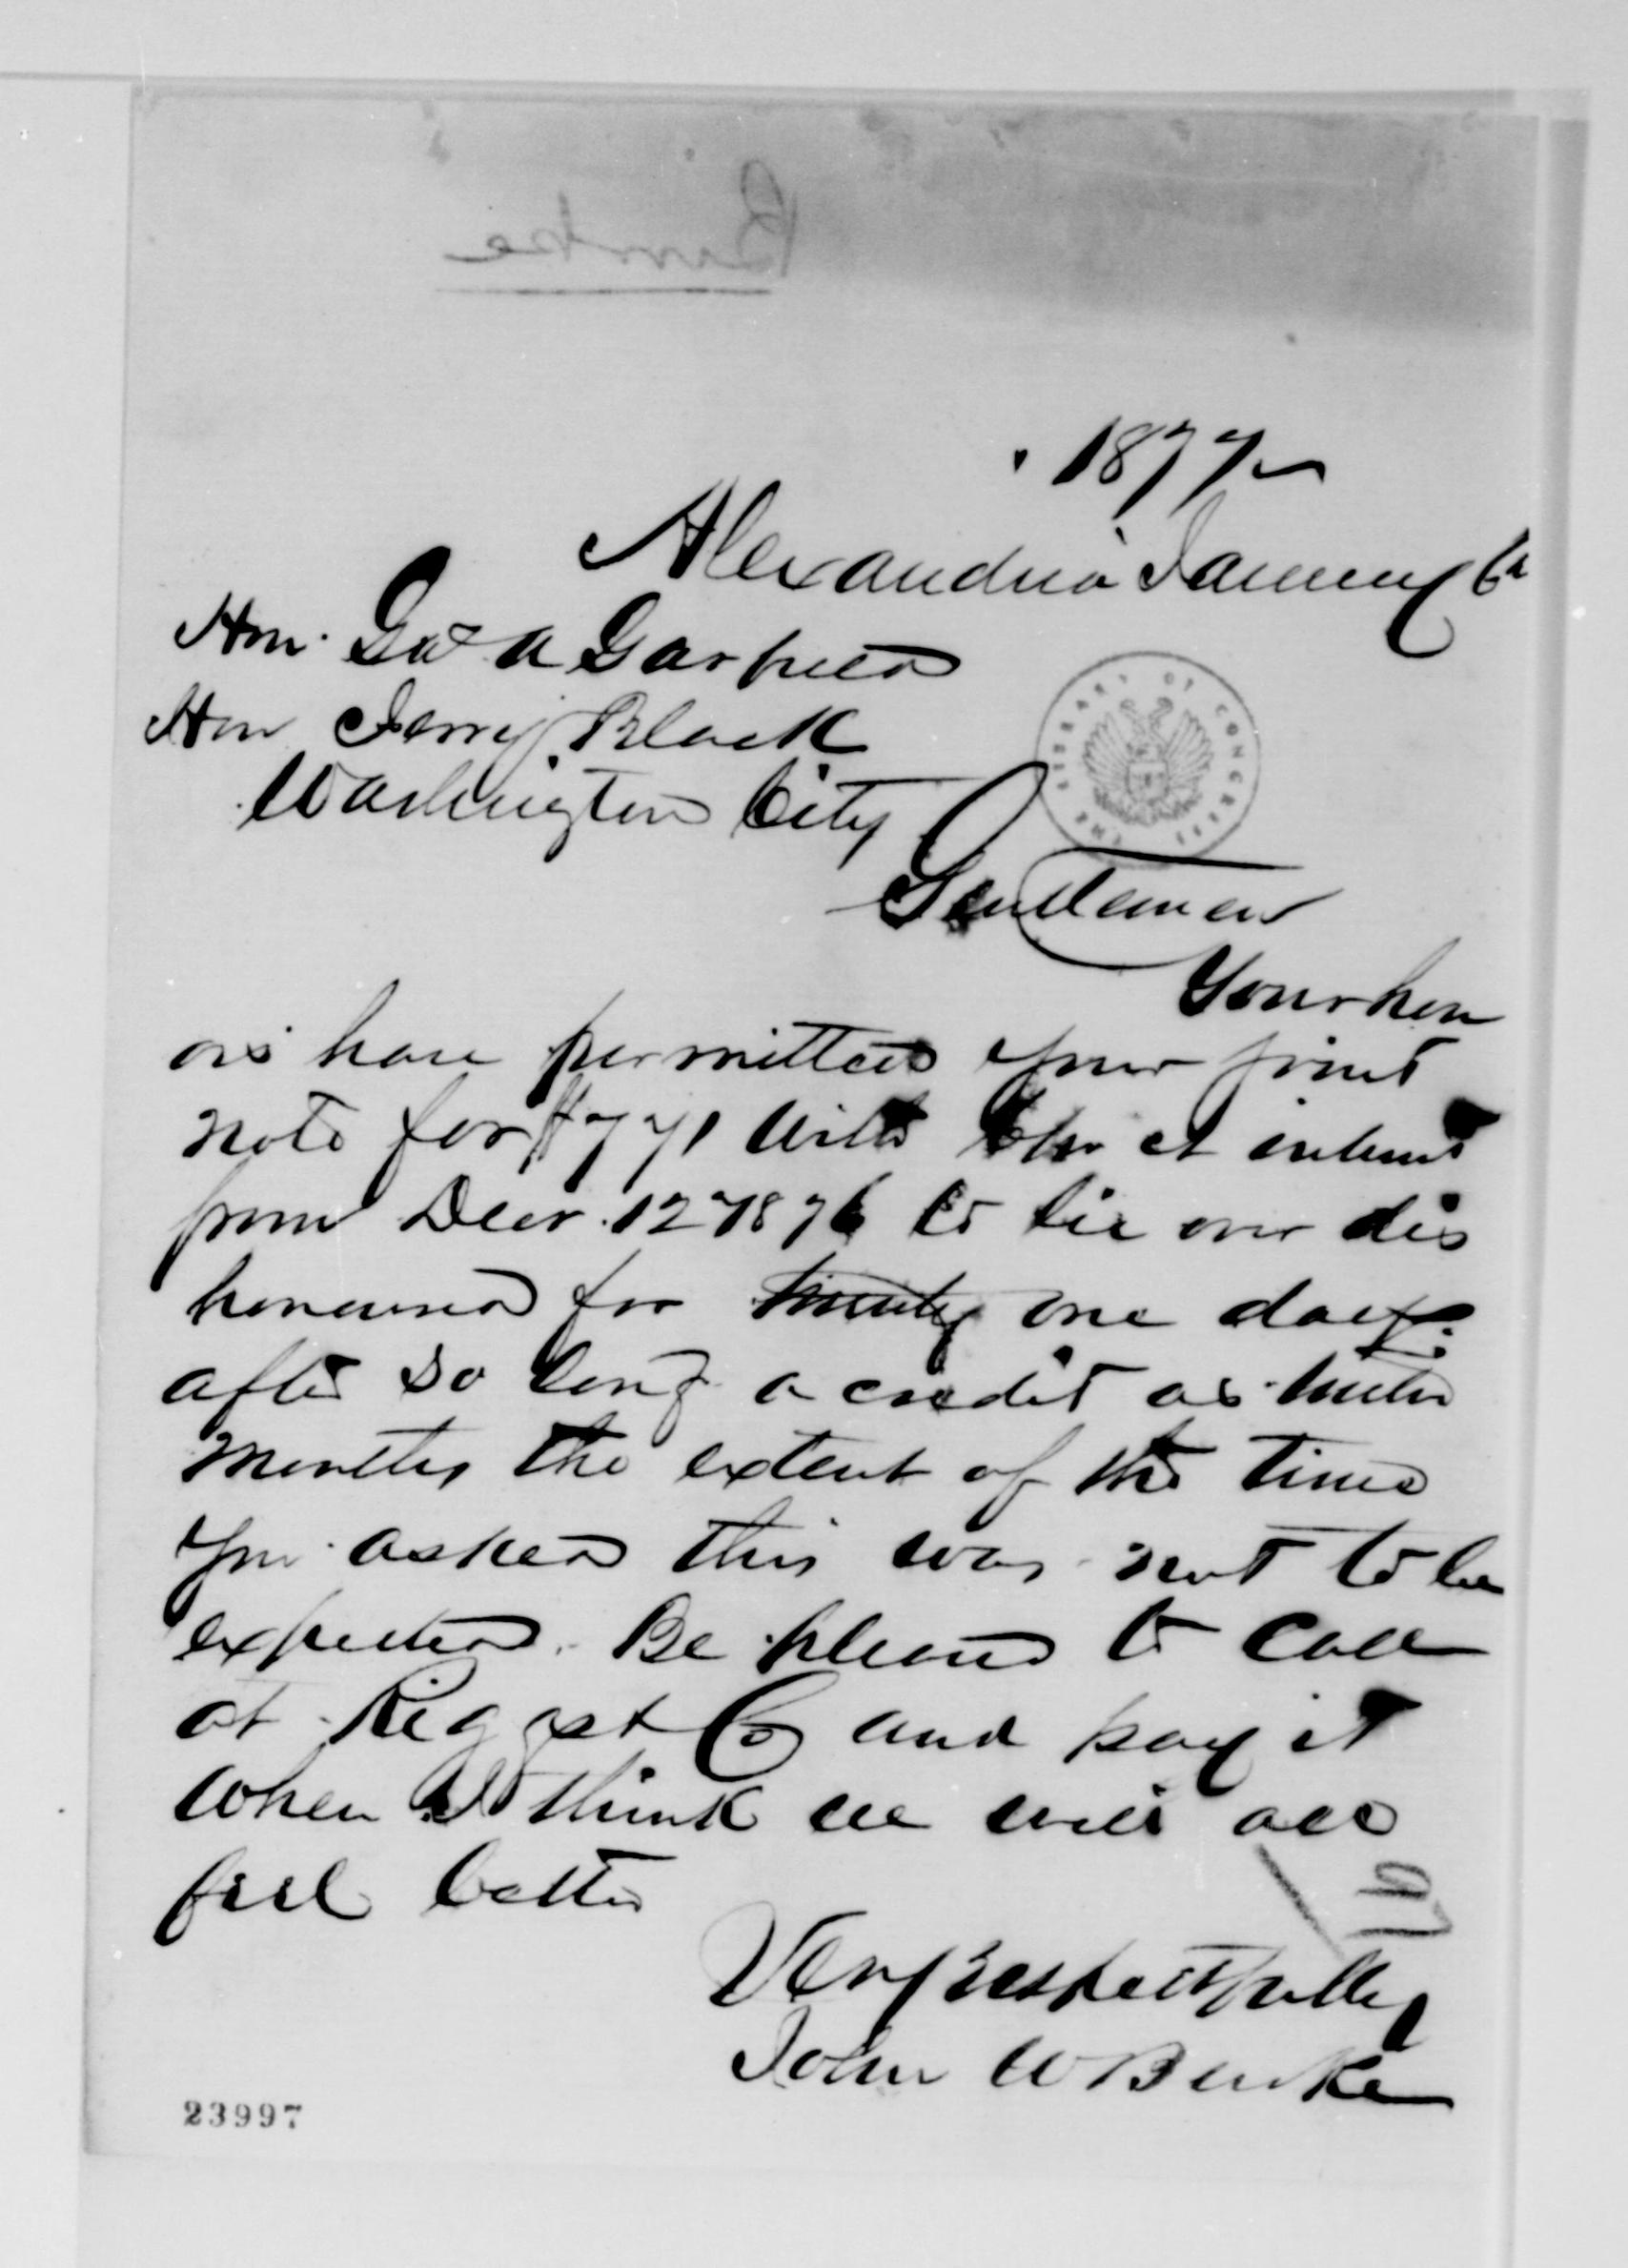 Burke
1877
Alexandria January 6h
Hon. Ja's A Garfield
Hon Jerry Black
Washington City
THE LIBRARY OF CONGRESS
Gentlemen
Your hon
ors have permitted your joint
note for $771 with int interest
from Decr. 12 1876 to lie over dis
honoured for twenty one days.
after so long a credit as twelve
months the extent of the time
you asked this was not to be
expected. Be pleased to call
at Riggs & Co and pay it
when I think we will all
feel better
Very Respectfully
John W Burke
23997